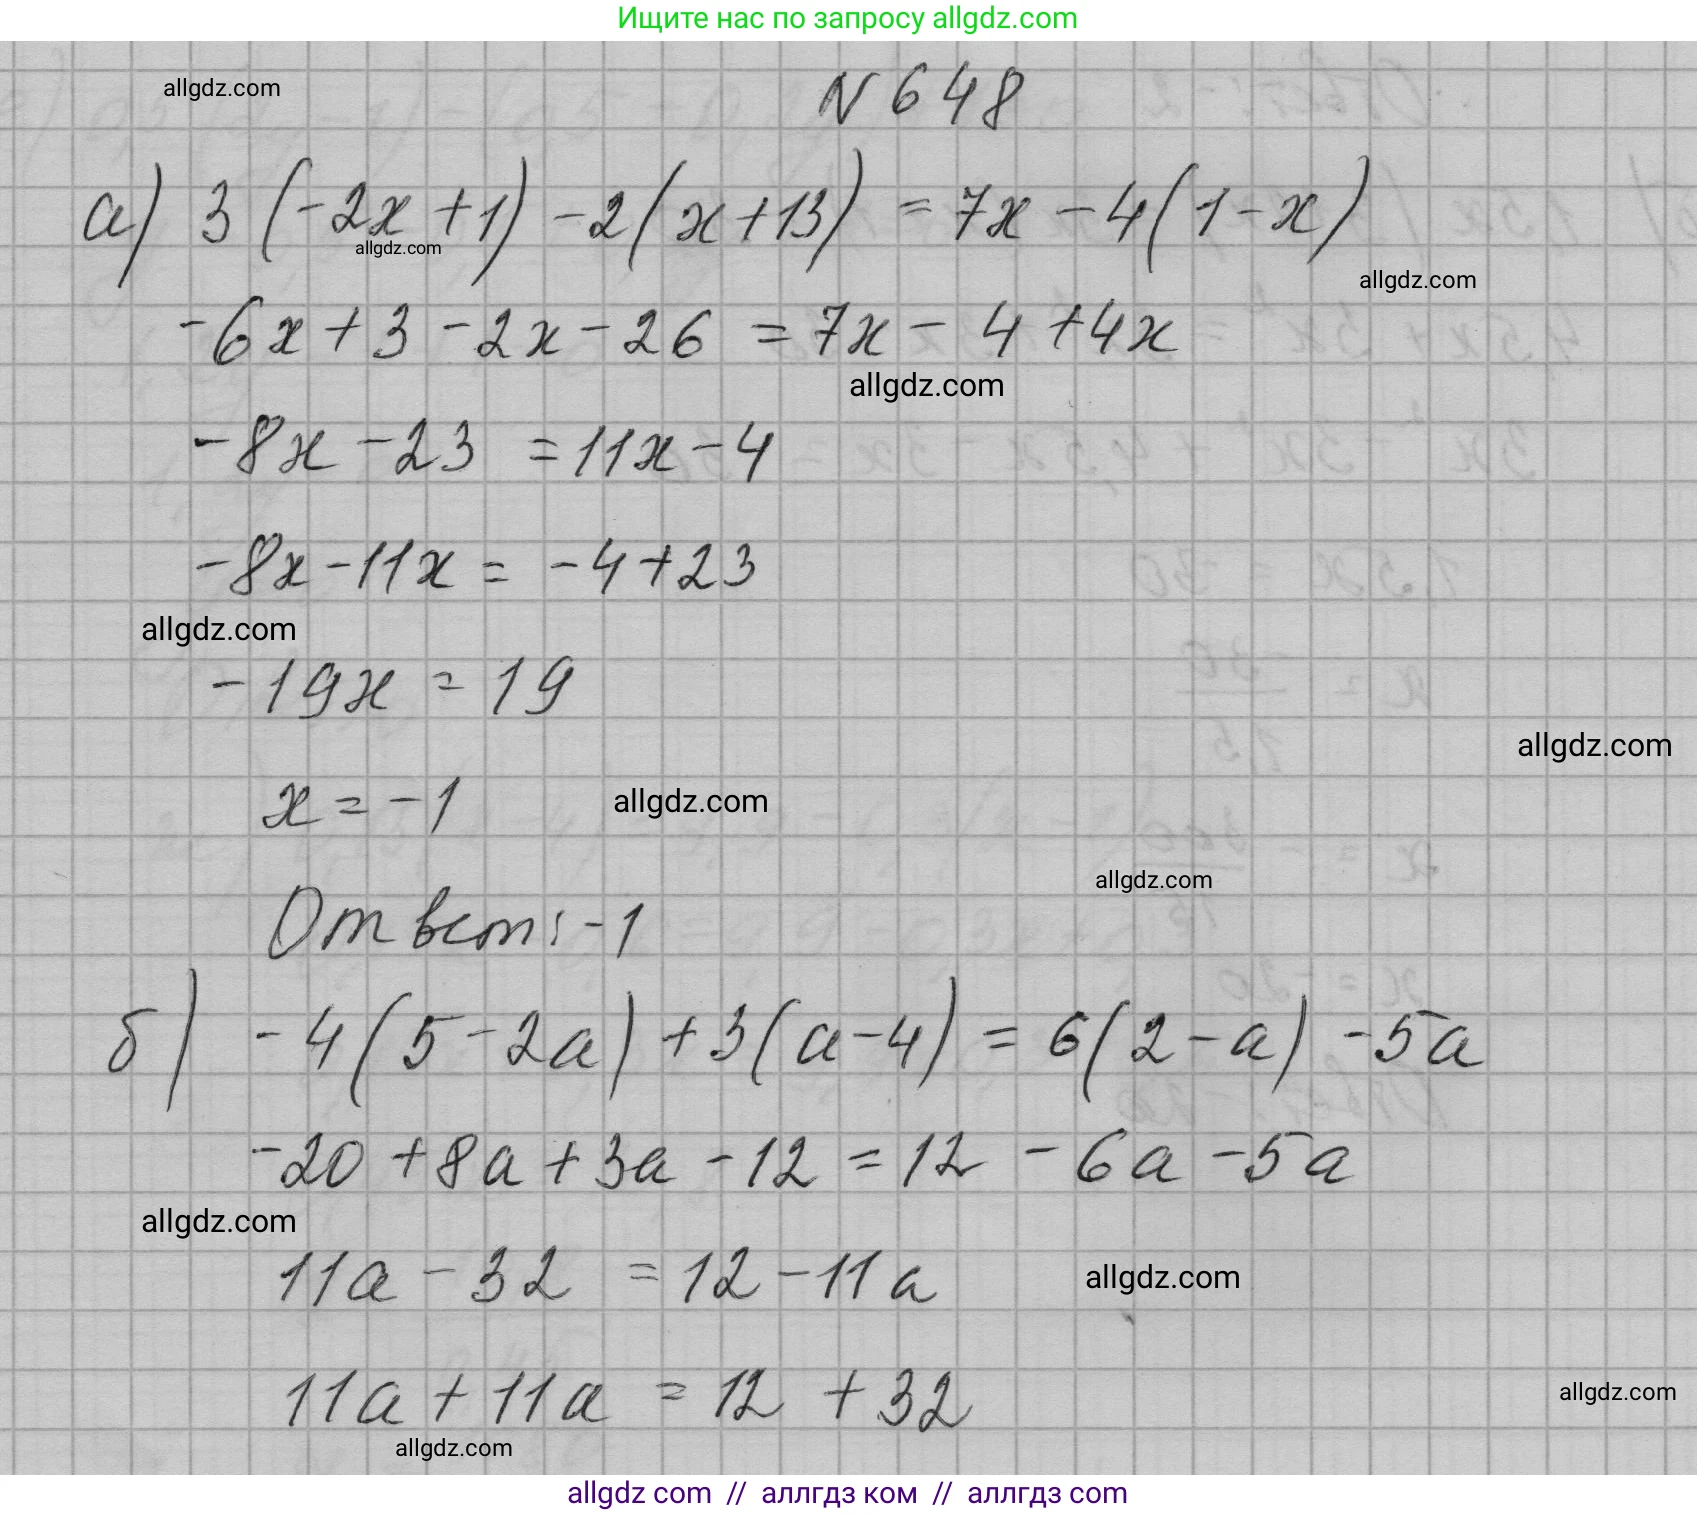 Ищите нас по запросу allgdz.com
allgdz.com
N 648
а) 3(-2x+1)-2(x+13) = 7x-4(1-x)
allgdz.com
allgdz.com
-6x+3-2x-26 = 7x-4+4x
allgdz.com
-8x-23 = 11x-4
-8x-11x = -4+23
allgdz.com
-19x = 19
allgdz.com
x = -1
allgdz.com
allgdz.com
Ответ: -1
б) -4(5-2a)+3(a-4) = 6(2-a)-5a
-20+8a+3a-12 = 12-6a-5a
allgdz.com
11a-32 = 12-11a
allgdz.com
11a+11a = 12+32
allgdz.com
allgdz.com
allgdz com // аллгдз ком // аллгдз com